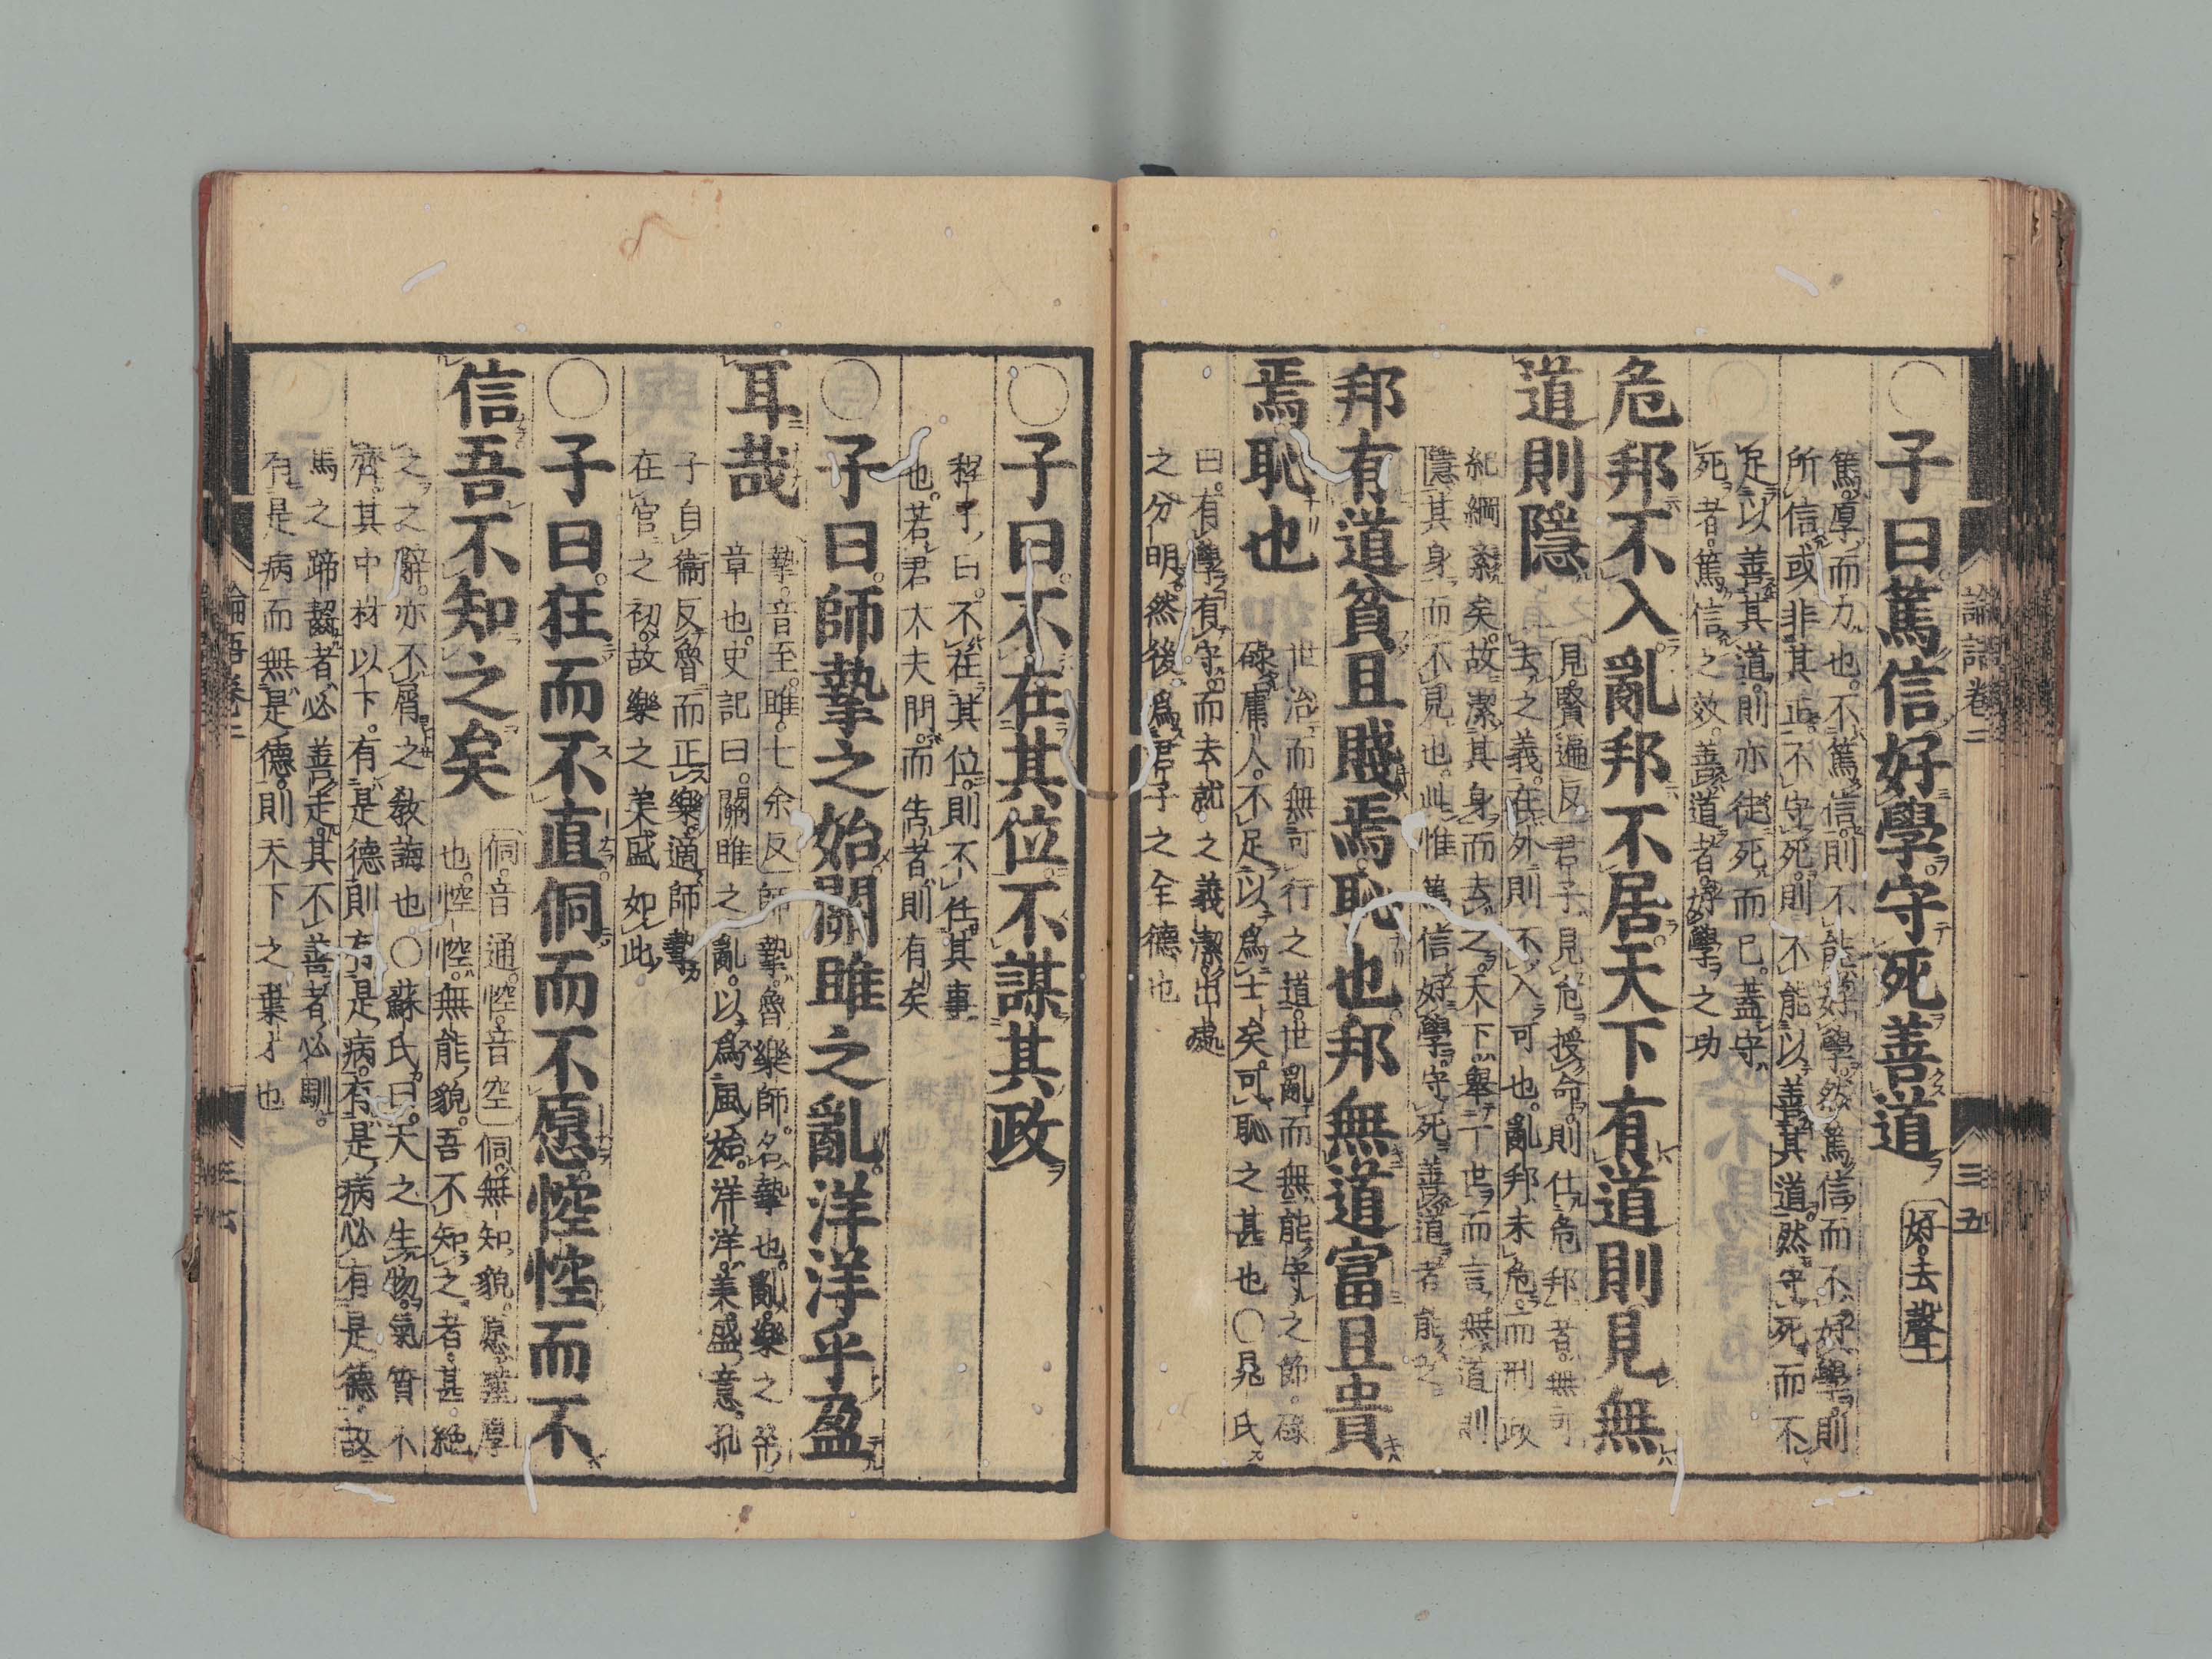 論語卷二
三五
○子曰篤信好學守死善道 好去聲
篤厚而力也不篤信則不能好學然篤信而不好學則
所信或非其正不守死則不能以善其道然守死而不
足以善其道則亦徒死而已蓋守
死者篤信之效善道者好學之功
危邦不入亂邦不居天下有道則見無
道則隱
見賢遍反君子見危授命則仕危邦者無可
去之義在外則不入可也亂邦未危而刑政
紀綱紊矣故潔其身而去之天下舉一世而言無道則
隱其身而不見也此惟篤信好學守死善道者能之
邦有道貧且賤焉恥也邦無道富且貴
焉恥也
世治而無可行之道世亂而無能守之節碌
碌庸人不足以爲士矣可恥之甚也○晁氏
曰有學有守而去就之義潔出處
之分明然後爲君子之全德也
○子曰不在其位不謀其政
程子曰不在其位則不任其事
也若君大夫問而告者則有矣
○子曰師摯之始關雎之亂洋洋乎盈
耳哉
摯音至雎七余反師摯魯樂師名摯也亂樂之卒
章也史記曰關雎之亂以爲風始洋洋美盛意孔
子自衞反魯而正樂適師摯
在官之初故樂之美盛如此
○子曰狂而不直侗而不愿悾悾而不
信吾不知之矣
侗音通悾音空侗無知貌愿謹厚
也悾悾無能貌吾不知之者甚絕
之之辭亦不屑之敎誨也○蘇氏曰天之生物氣質不
齊其中材以下有是德則有是病有是病必有是德故
馬之蹄齧者必善走其不善者必馴
有是病而無是德則天下之棄才也
論語卷二
三六